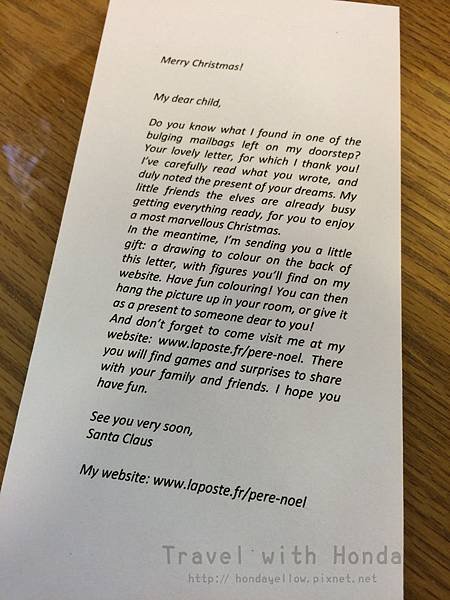 Merry Christmas!
My dear child,
Do you know what I found in one of the
bulging mailbags left on my doorstep?
Your lovely letter, for which I thank you!
I've carefully read what you wrote, and
duly noted the present of your dreams. My
little friends the elves are already busy
getting everything ready, for you to enjoy
a most marvellous Christmas.
In the meantime, I'm sending you a little
gift: a drawing to colour on the back of
this letter, with figures you'll find on my
website. Have fun colouring! You can then
hang the picture up in your room, or give it
as a present to someone dear to you!
And don't forget to come visit me at my
website: www.laposte.fr/pere-noel. There
you will find games and surprises to share
with your family and friends. I hope you
have fun.
See you very soon,
Santa Claus
My website: www.laposte.fr/pere-noel
Travel with Honda
http://hondayellow.pixnet.net